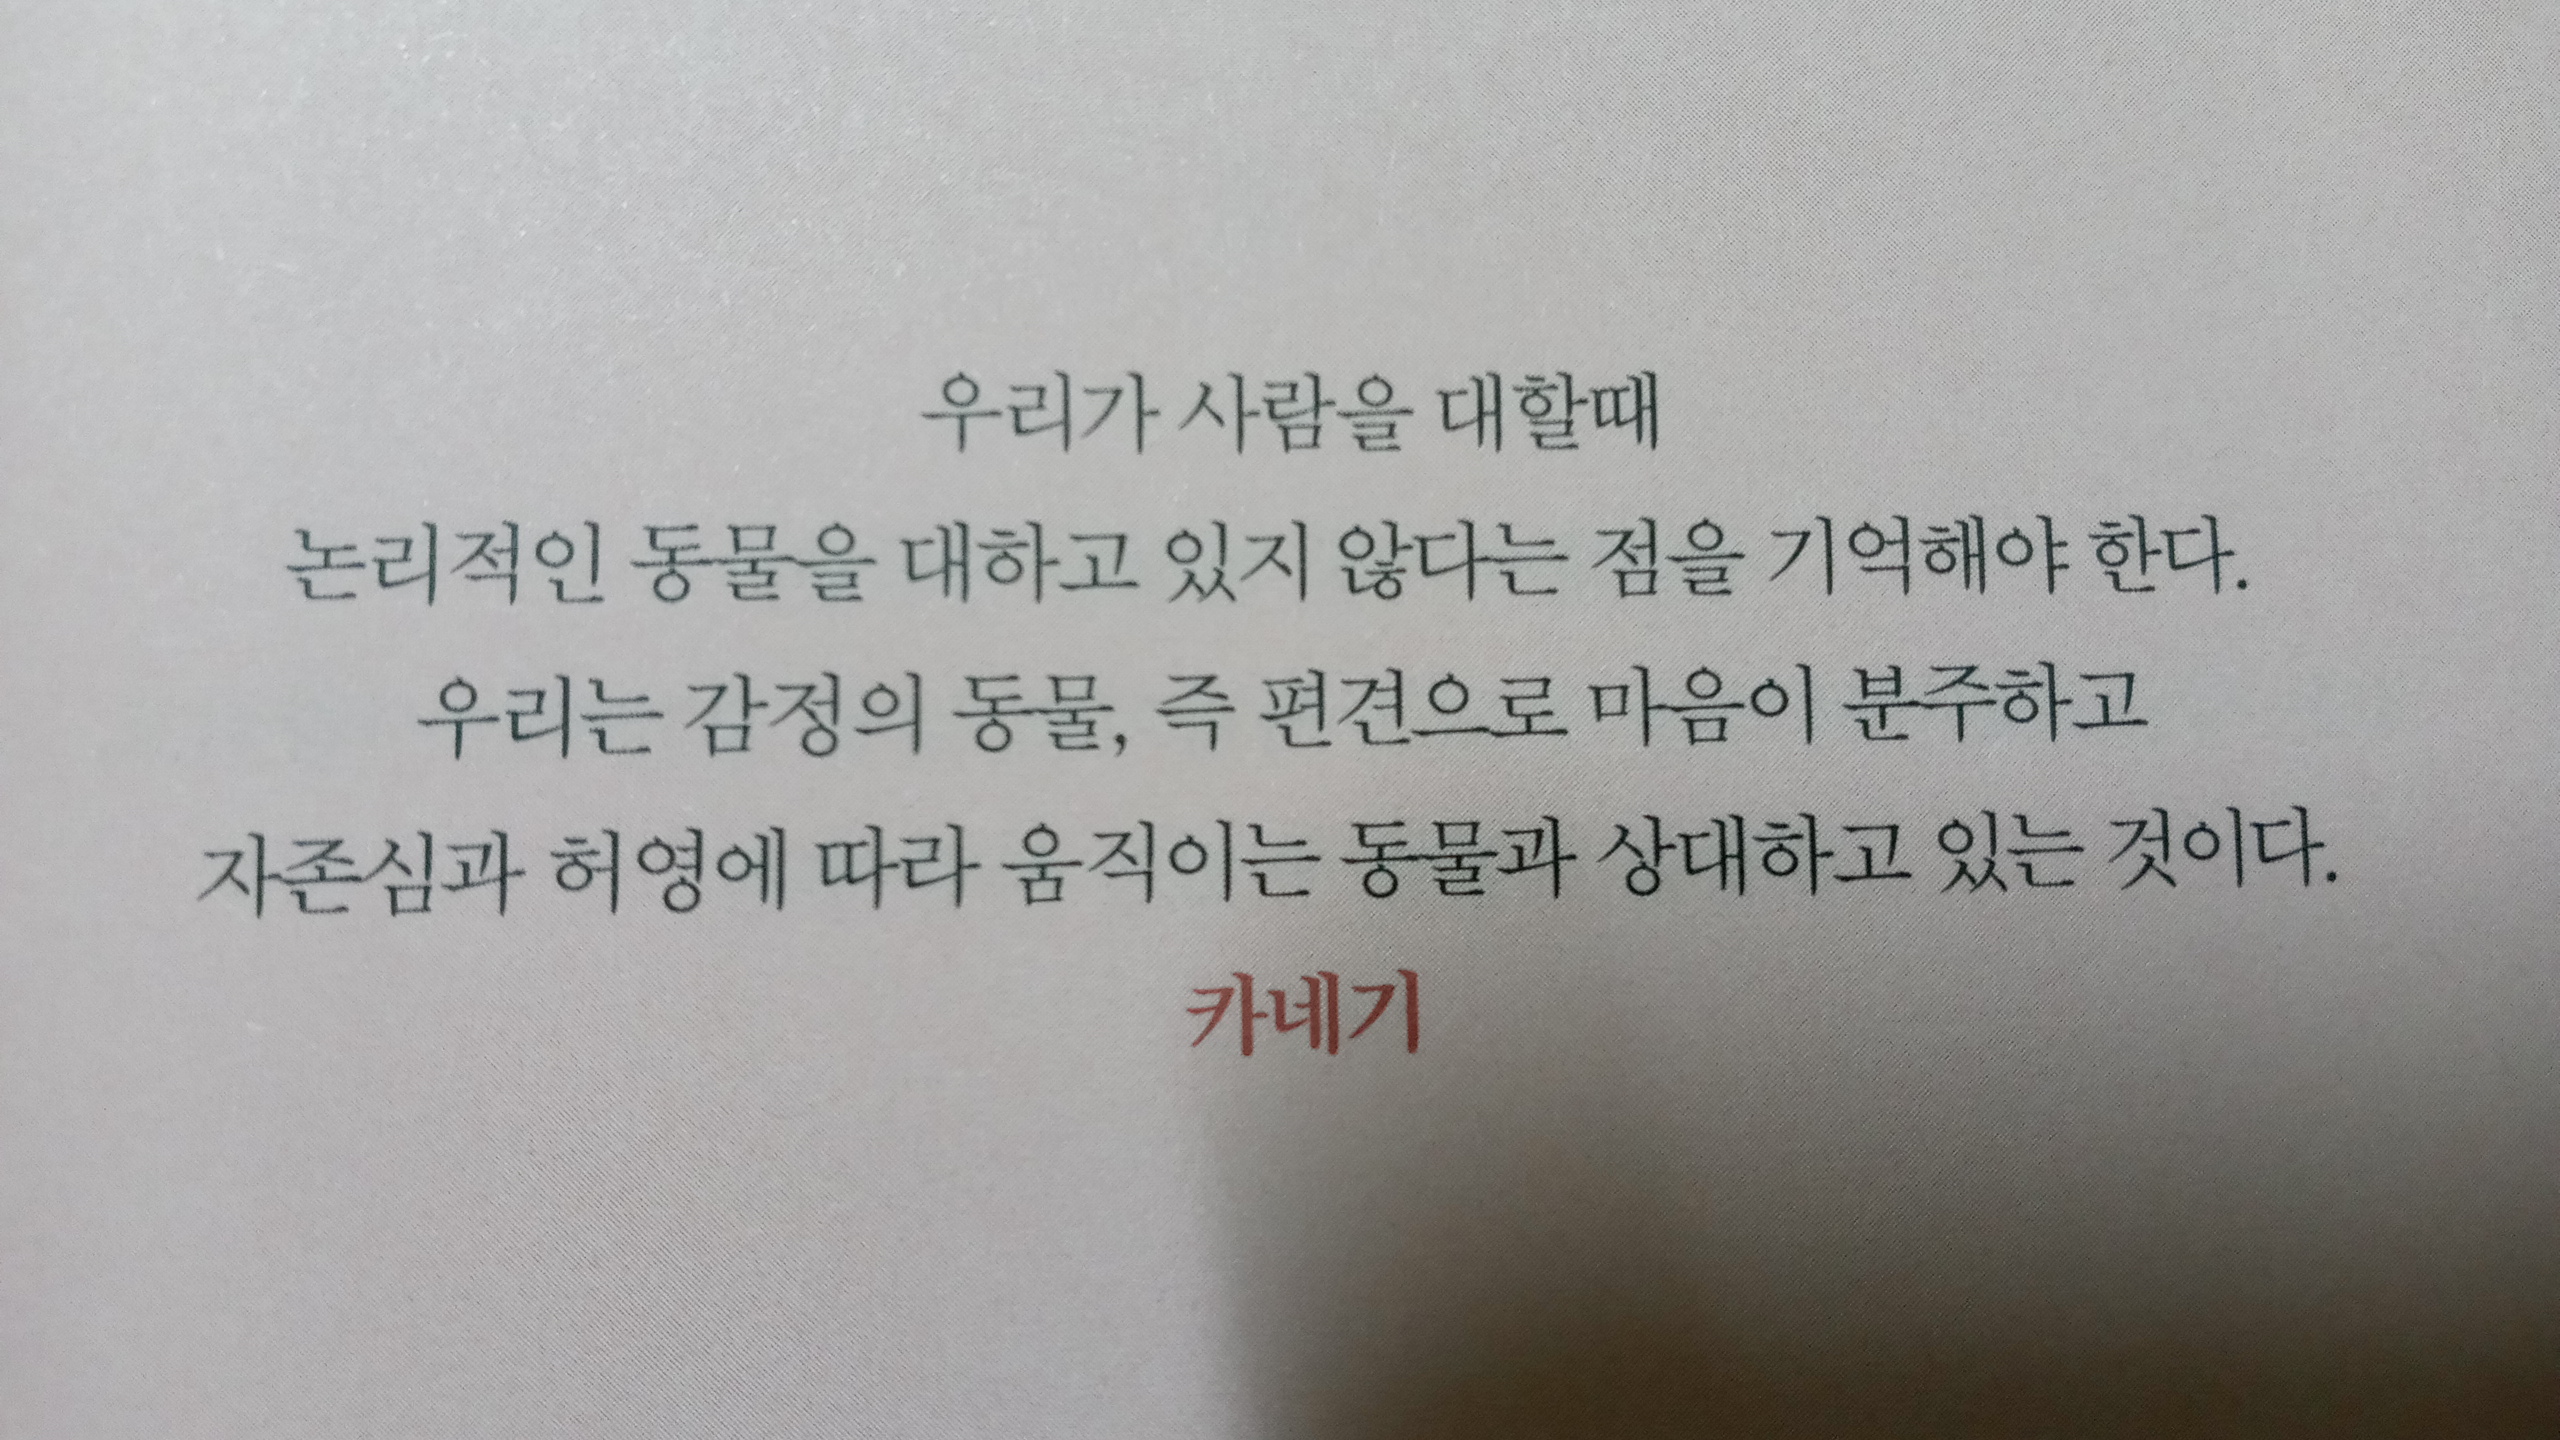 우리가 사람을 대할때
논리적인 동물을 대하고 있지 않다는 점을 기억해야 한다.
우리는 감정의 동물, 즉 편견으로 마음이 분주하고
자존심과 허영에 따라 움직이는 동물과 상대하고 있는 것이다.
카네기